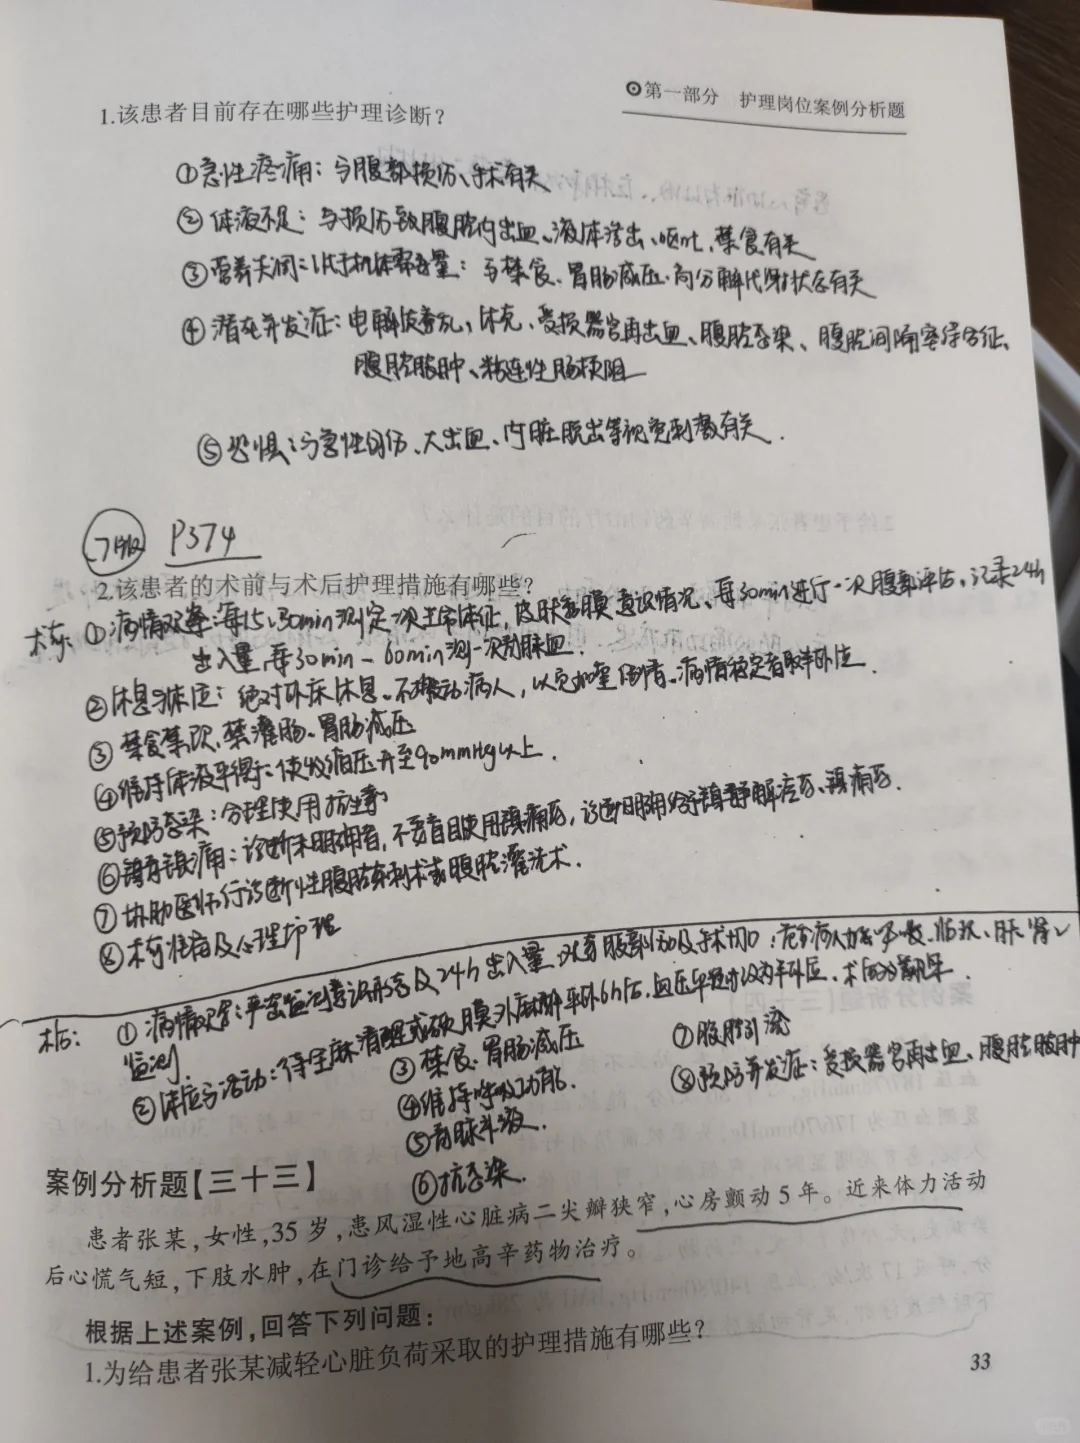 第一部分 护理岗位案例分析题
1.该患者目前存在哪些护理诊断？
①急性疼痛：与腹部损伤、手术有关
②体液不足：与损伤致腹腔内出血、液体渗出、呕吐、禁食有关
③营养失调：低于机体需要量：与禁食、胃肠减压、高分解代谢状态有关
④潜在并发症：电解质紊乱，休克、受损器官再出血、腹腔感染、腹腔间隔室综合征、
腹腔脓肿、粘连性肠梗阻
⑤恐惧：与急性创伤、大出血、内脏脱出等视觉刺激有关.
7版 P374
2.该患者的术前与术后护理措施有哪些？
术前：①病情观察：每15、30min测定一次生命体征，皮肤黏膜 意识情况、每30min进行一次腹部评估，记录24h
出入量，每30min-60min测一次黏膜血.
②休息与体位：绝对卧床休息、不搬动病人，以免加重伤情。病情稳定者取半卧位.
③禁食禁饮、禁灌肠、胃肠减压
④维持体液平衡：使收缩压升至90mmHg以上.
⑤预防感染：合理使用抗生素
⑥镇静镇痛：诊断未明确者，不要盲目使用镇痛药，诊断明确给予镇静解痉药、镇痛药.
⑦协助医师行诊断性腹腔穿刺术或腹腔灌洗术.
⑧术前准备及心理护理
术后：①病情观察：严密监测意识形态及24h出入量 观察腹部伤口及手术切口；危重病人加强呼吸、循环、肝肾
监测.
②体位与活动：待全麻清醒或硬膜外麻醉平卧6h后，血压平稳改为半卧位、术后多翻身.
③禁食、胃肠减压
④维持呼吸功能.
⑤静脉补液.
⑥抗感染.
⑦腹腔引流
⑧预防并发症：受损器官再出血、腹腔脓肿
案例分析题【三十三】
患者张某，女性，35岁，患风湿性心脏病二尖瓣狭窄，心房颤动5年。近来体力活动
后心慌气短，下肢水肿，在门诊给予地高辛药物治疗。
根据上述案例，回答下列问题：
1.为给患者张某减轻心脏负荷采取的护理措施有哪些？
33